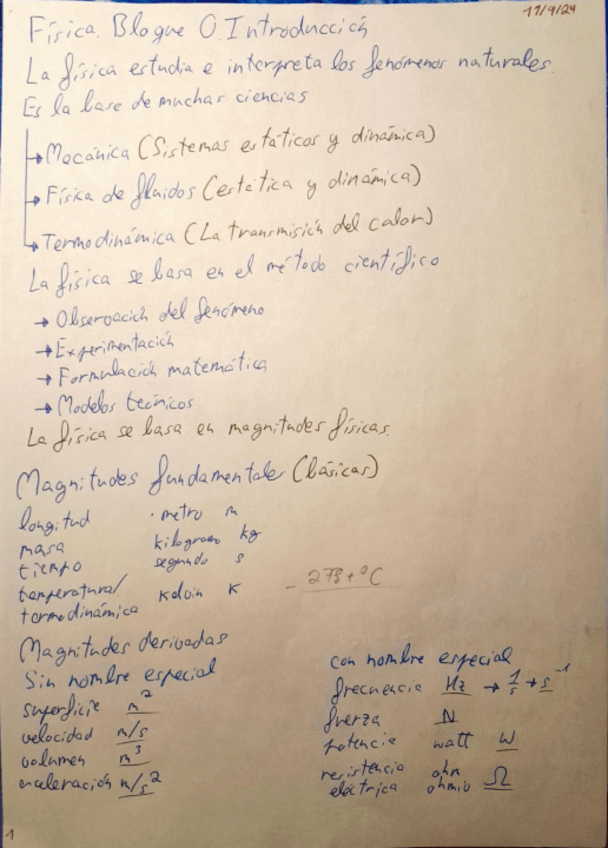 17/9/24
Física. Bloque 0. Introducción
La física estudia e interpreta los fenómenos naturales.
Es la base de muchas ciencias
→ Mecánica (Sistemas estáticos y dinámica)
→ Física de fluidos (estática y dinámica)
→ Termodinámica (La transmisión del calor)
La física se basa en el método científico
→ Observación del fenómeno
→ Experimentación
→ Formulación matemática
→ Modelos técnicos
La física se basa en magnitudes físicas.
Magnitudes fundamentales (básicas)
longitud · metro m
masa kilogramo kg
tiempo segundo s
temperatura/
termodinámica Kelvin K - 273+°C
Magnitudes derivadas
Sin nombre especial
superficie m²
velocidad m/s
volumen m³
aceleración m/s²
con nombre especial
frecuencia Hz → 1/s → s⁻¹
fuerza N
potencia watt W
resistencia ohn
eléctrica ohmio Ω
1